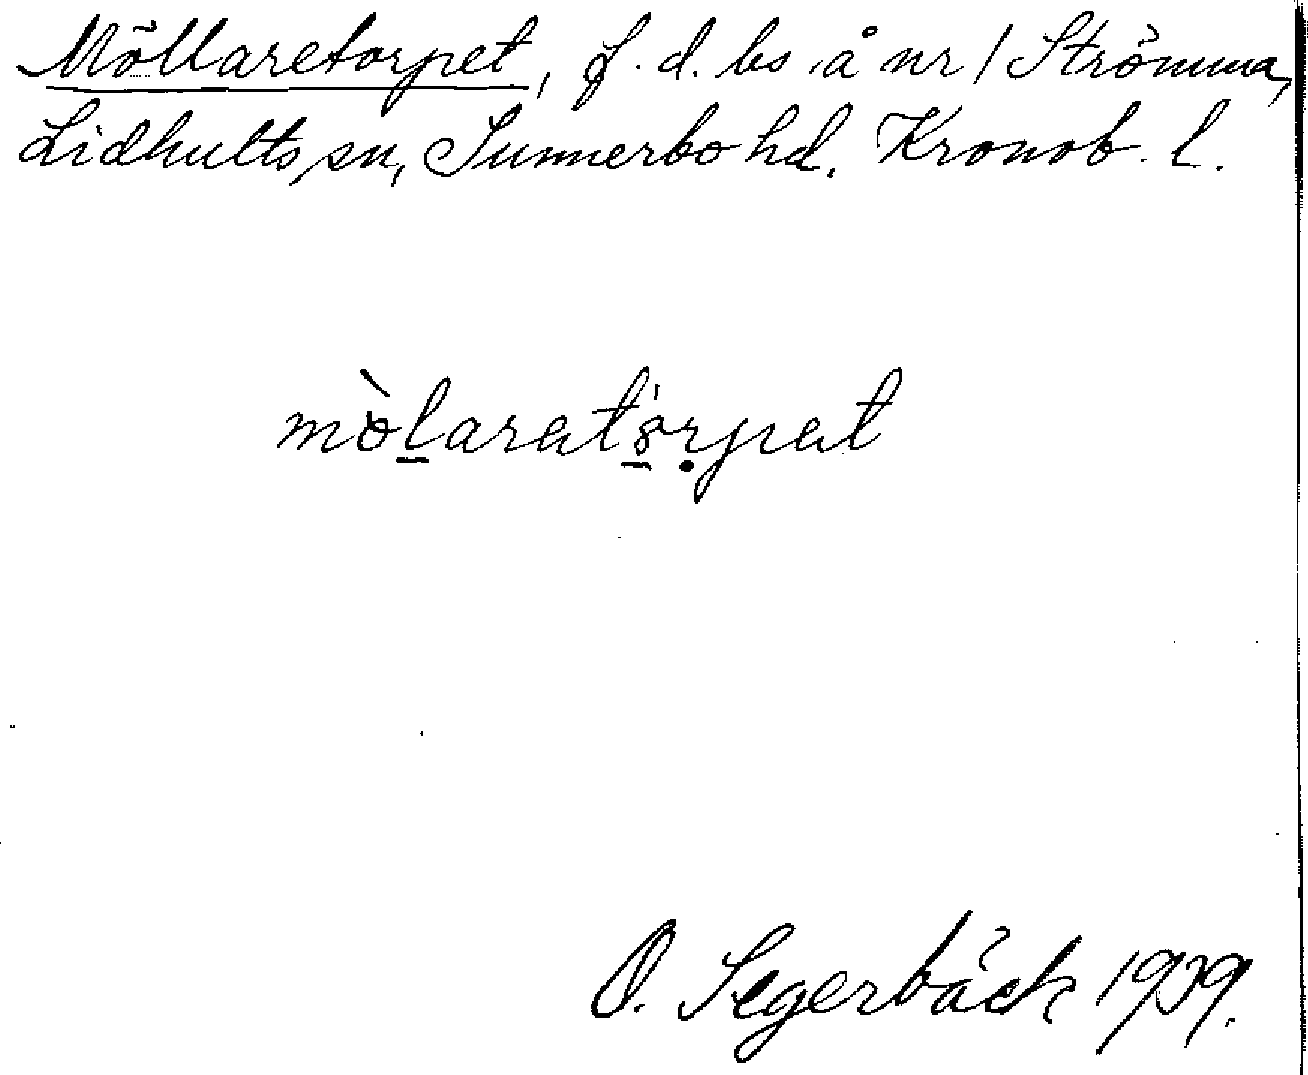 Möllaretorpet, f. d. bs å nr 1 Strömma,
Lidhults sn, Sunnerbo hd. Kronob. l.
mòl̲arat'o̲ṛpat
O. Segerbäck 1939.